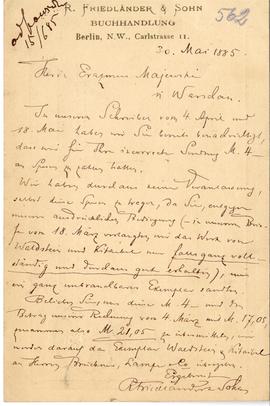 R. FRIEDLÄNDER & SOHN
BUCHHANDLUNG
Berlin, N.W., Carlstrasse 11.
562
15/6 85
30. Mai 1885.
Herrn Erasmus Majewski
in Warschau.
In unseren Schreiben vom 4 April und
18 Mai haben wir Sie bereits benachrichtigt,
dass wir für Ihre incorrecte Sendung M. 4—
an Spesen zu zahlen hatten.
Wir haben durchaus keine Veranlassung,
selbst diese Spesen zu tragen, da Sie, entgegen
unserer ausdrücklichen Bedingung (– in unserem Brie-
fe vom 18. März verlangten wir das Werk von
Waldstein und Kitaibel nur
ständig und durchaus gut erhalten), uns
ein ganz unbrauchbares Exemplar sandten.
Belieben Sie, uns diese M 4— und den
Betrag unserer Rechnung vom 4. März mit M. 17,05,
zusammen also M. 21,05 zu übermitteln, wir
werden darauf das Exemplar Waldstein & Kitaibel
an Herren & Co übergeben.
Ergebenst
R Friedländer & Sohn